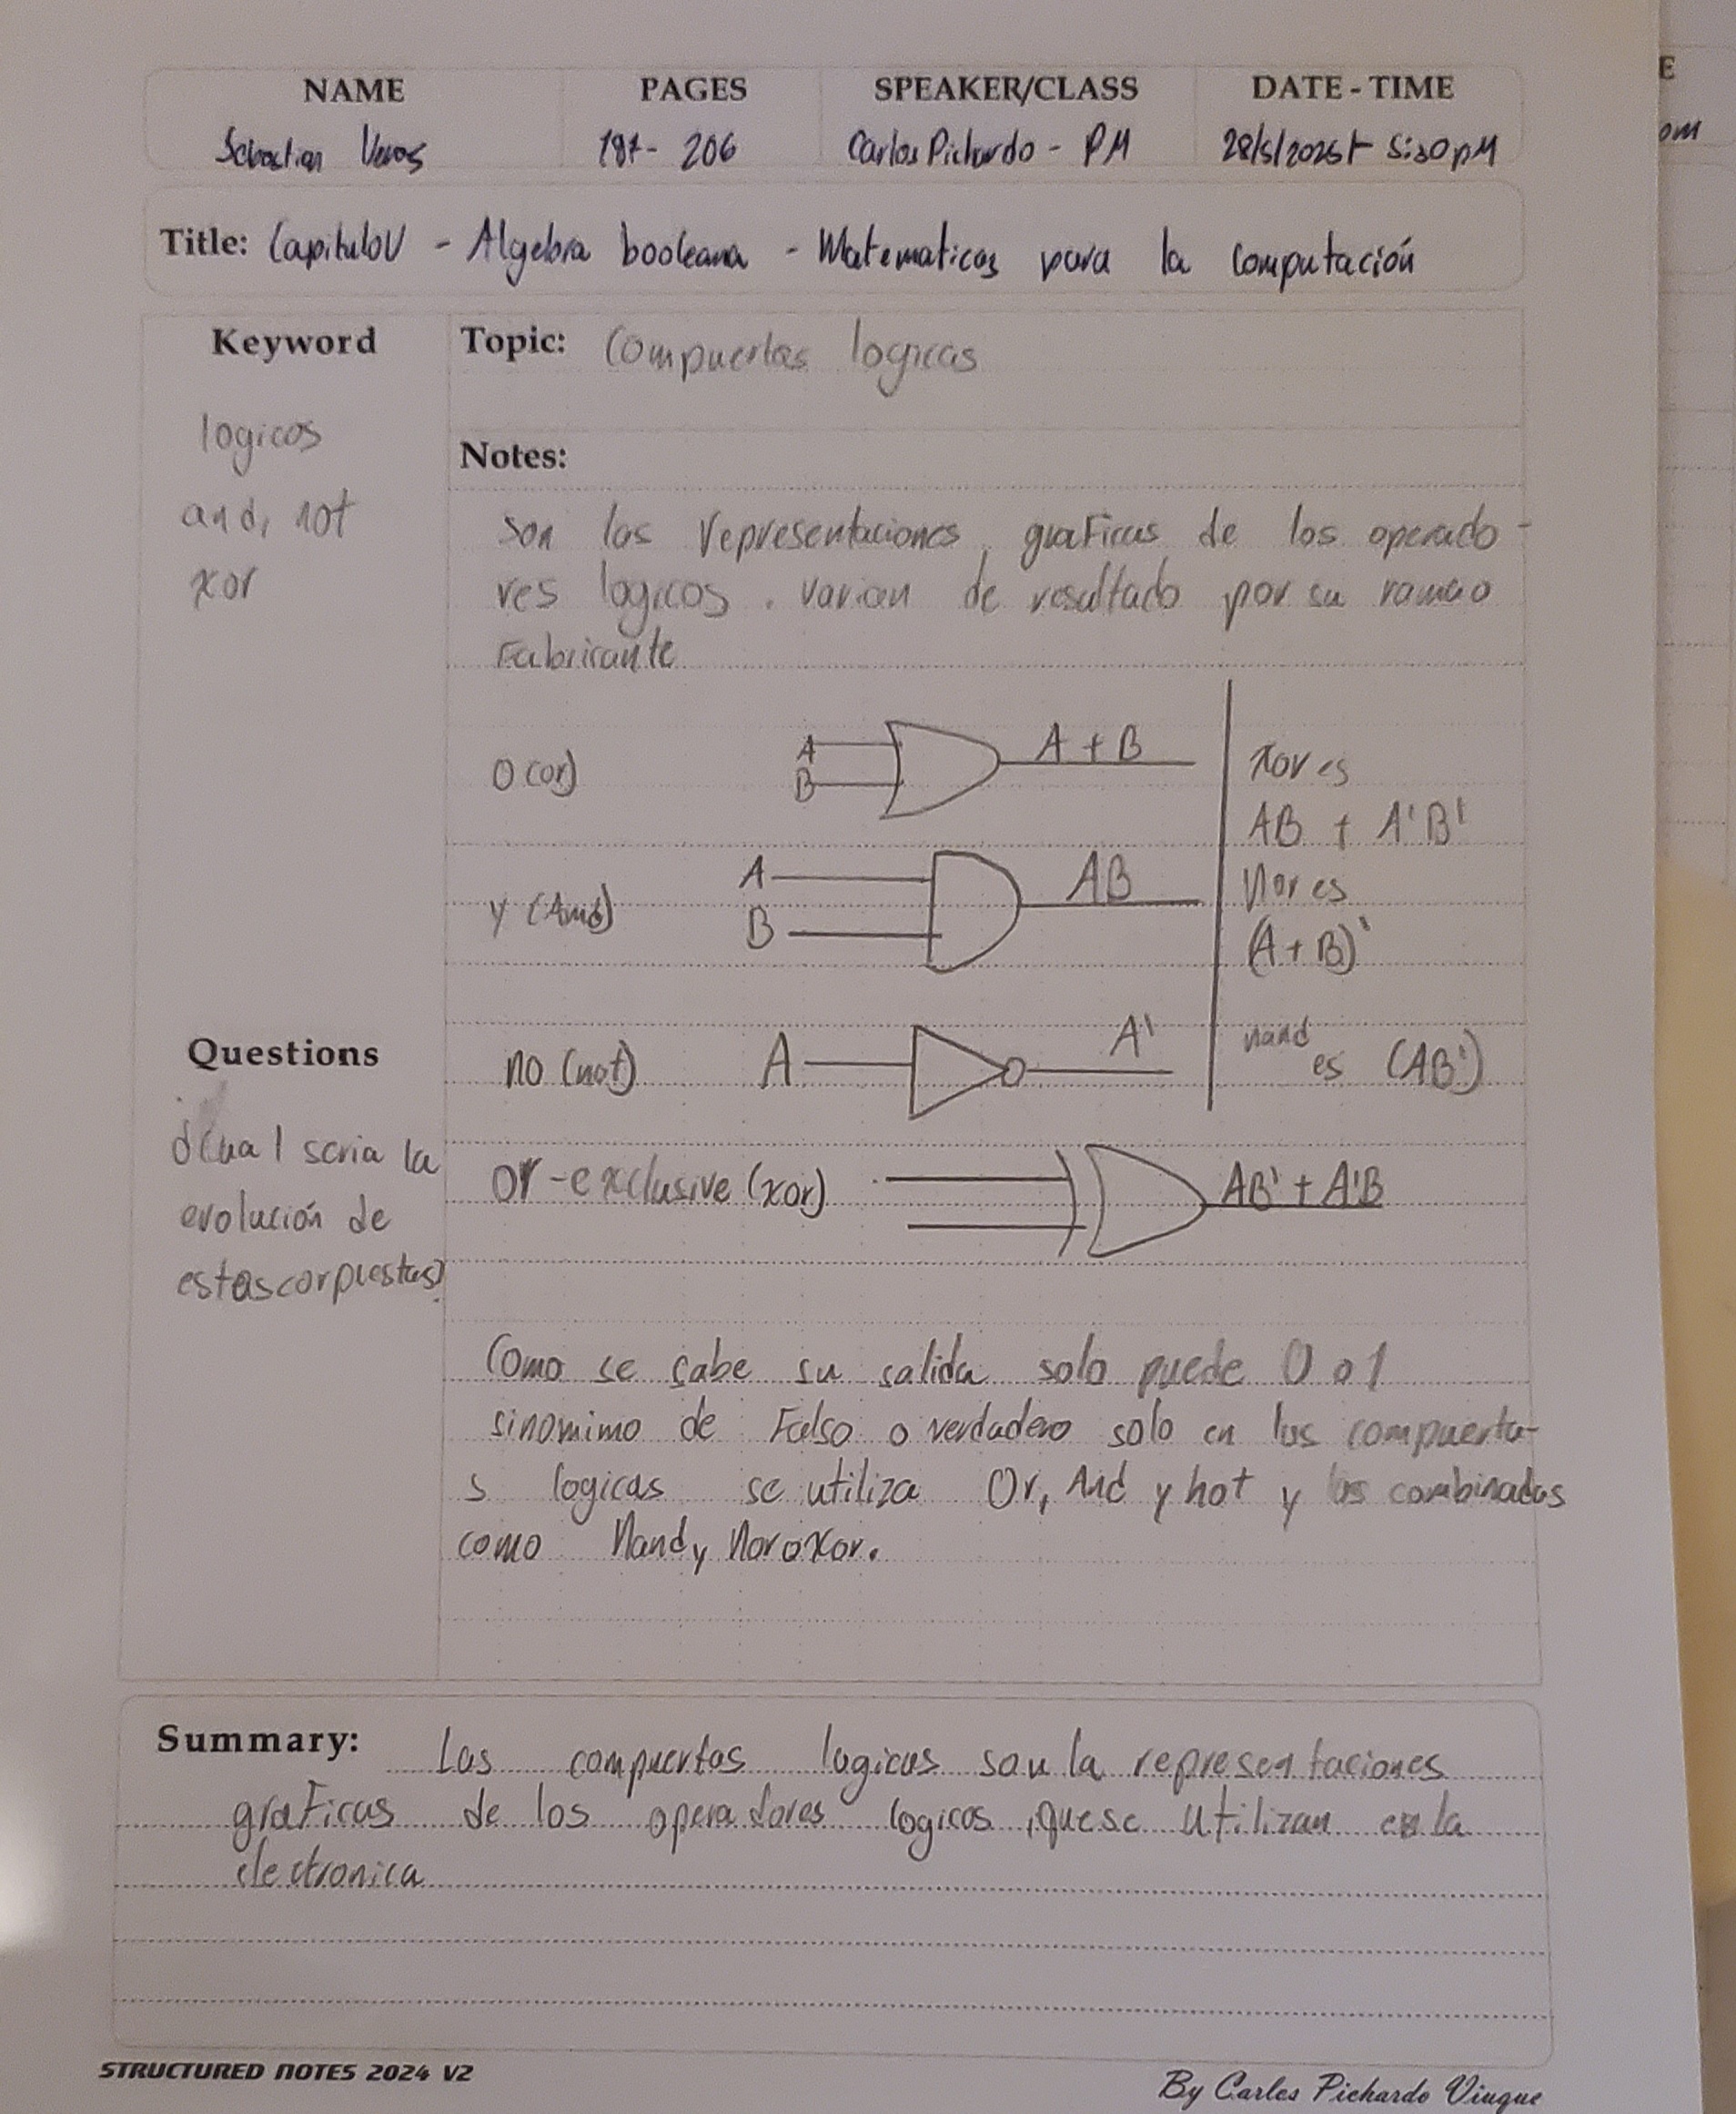 NAME PAGES SPEAKER/CLASS DATE - TIME
Sebastian Veras 187- 206 Carlos Pichardo - PM 28/5/2025 - 5:30 pM
Title: Capitulo V - Algebra booleana - Matematicas para la computación
Keyword
logicos
and, not
xor
Topic: Compuertas logicas
Notes:
Son las representaciones graficas de los operado-
res logicos. varian de resultado por su ramao
Fabricante
O (or) A B A + B
Y (And) A B AB
no (not) A A'
or-exclusive (xor) AB' + A'B
xor es
AB + A'B'
Nor es
(A+B)'
nand es (AB')
Como se sabe su salida solo puede 0 o 1
sinomimo de Falso o verdadero solo en las compuerta-
s logicas se utiliza Or, And y not y las combinadas
como Nand y Nor o Xor.
Questions
¿Cual seria la
evolución de
estas corpuestas?
Summary: Las compuertas logicas son la representaciones
graficas de los operadores logicos, que se utilizan en la
electronica
STRUCTURED NOTES 2024 V2
By Carlos Pichardo Viuque
E
om